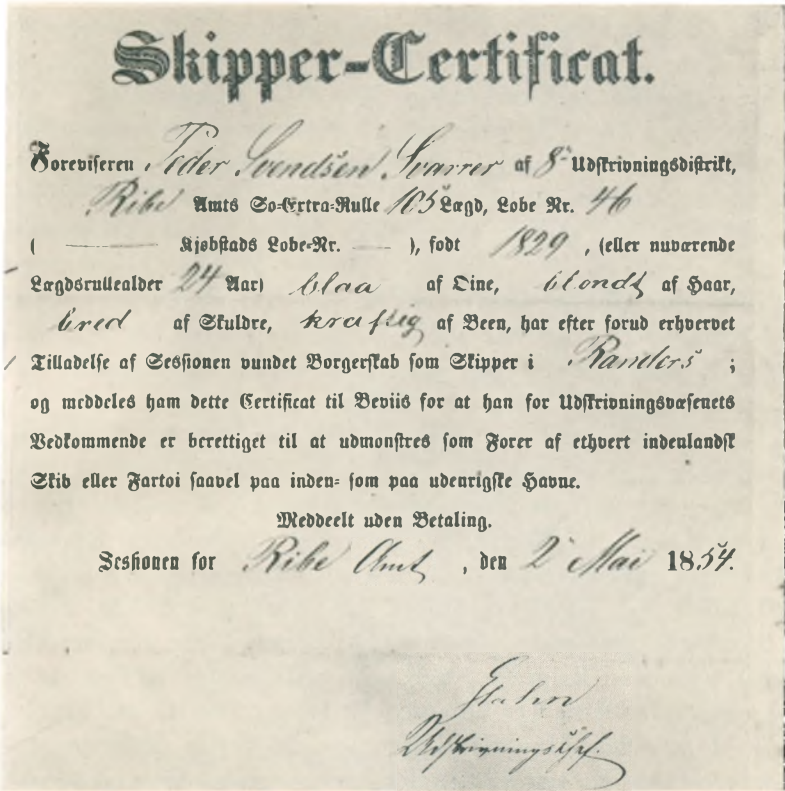 Skipper-Certificat.
Foreviseren Peder Svendsen Svarrer af 8de Udskrivningsdistrikt,
Ribe Amts So-Extra-Rulle 105 Lægd, Lobe Nr. 46
( — Kjobstads Lobe-Nr. — ), fodt 1829, (eller nuværende
Lægdsrullealder 24 Aar) blaa af Oine, blondt af Haar,
bred af Skuldre, kraftig af Been, har efter forud erhvervet
Tilladelse af Sessionen vundet Borgerskab som Skipper i Randers ;
og meddeles ham dette Certificat til Beviis for at han for Udskrivningsvæsenets
Vedkommende er berettiget til at udmonstres som Forer af ethvert indenlandsk
Skib eller Fartoi saavel paa inden- som paa udenrigske Havne.
Meddeelt uden Betaling.
Sessionen for Ribe Amt, den 2 Mai 1854.
Udskrivningschef.